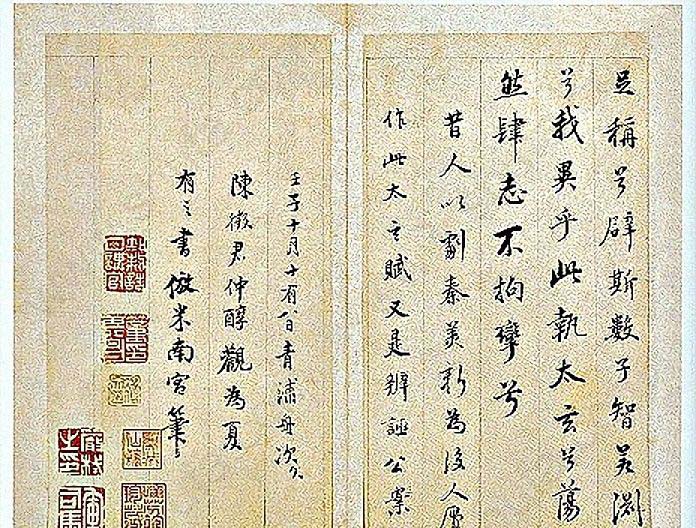 足稱兮辟斯數子智若淵
兮我異乎此執太玄兮蕩
然肆志不拘攣兮
昔人以劇秦美新為後人
作此太玄賦又是辨誣公案
壬子十月十有八日青浦舟次
陳徵君仲醇觀為夏
有之書倣米南宮筆
知制誥日講官